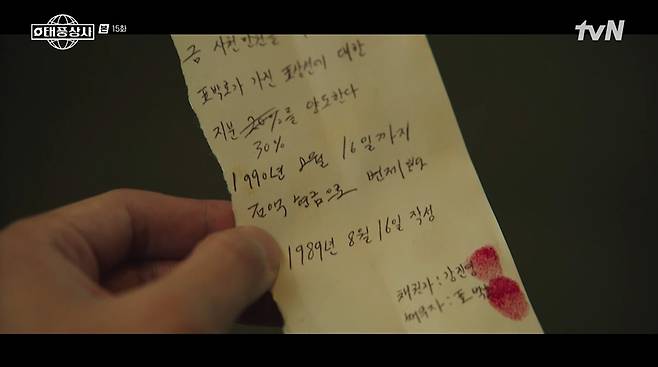 태풍상사 15화
tvN
금 사천만원을
표박호가 가진 표상선에 대한
지분 20%를 양도한다
30%
1990년 2월 16일까지
전액 현금으로 변제
1989년 8월 16일 작성
채권자 : 강진영
채무자 : 표박